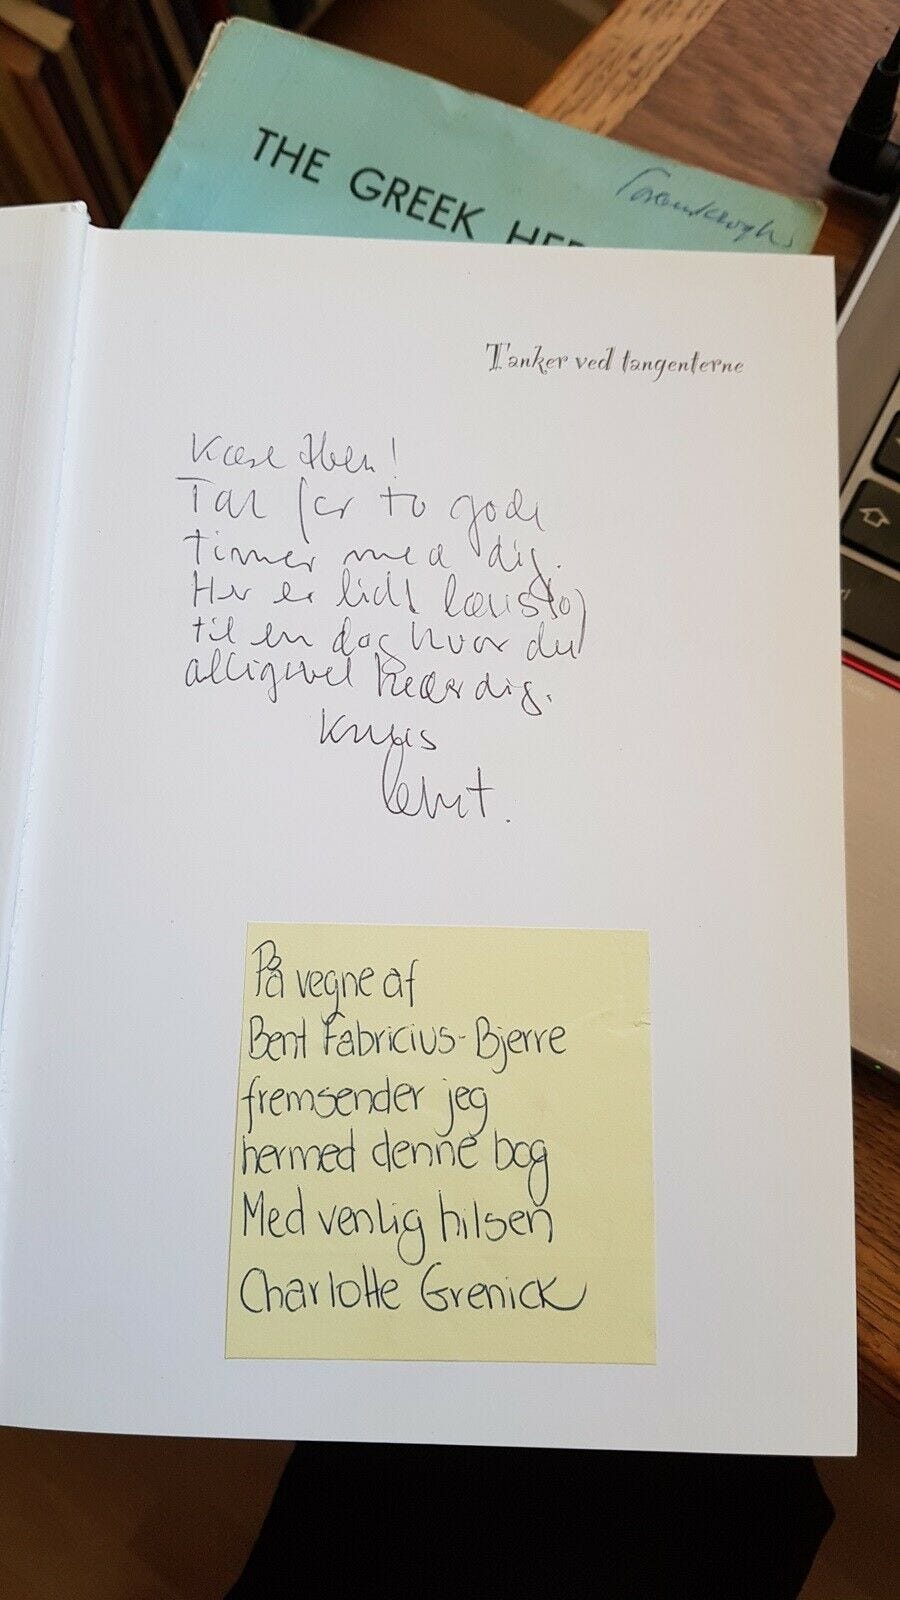 THE GREEK HER
Tanker ved tangenterne
Kære Iben!
Tak for to gode
timer med dig.
Her er lidt læsestof
til en dag hvor du
alligevel keder dig.
Knus
Bent.
På vegne af
Bent Fabricius-Bjerre
fremsender jeg
hermed denne bog
Med venlig hilsen
Charlotte Grenick